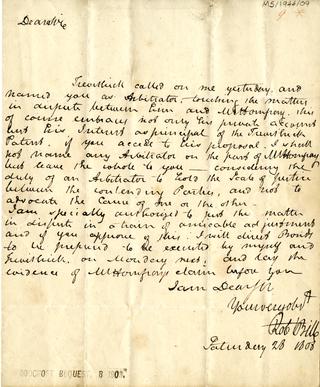 MS/1944/09
Dear Sir
Trevithick called on me yesterday, and
named you as Arbitrator, touching the matter
in dispute between him and Mr Homfray. this
of course embraces not only his private account
but his Interest as principal of the Trevithick
Patent. if you accede to this proposal, I shall
not name any Arbitrator on the part of Mr Homfray
but leave the whole to you — considering the
duty of an Arbitrator to hold the Scale of Justice
between the contending Parties, and not to
advocate the Cause of one or the other.
I am specially authorized to put the matter
in dispute in a train of amicable adjustment
and if you approve of this: I will direct Bonds
to be prepared to be executed by myself and
Trevithick, on Monday next; and lay the
evidence of Mr Homfray claim before you
I am Dear Sir
Your very obt
Rob Bill
Saturday 23 1808
WOODCROFT BEQUEST. B 1903.